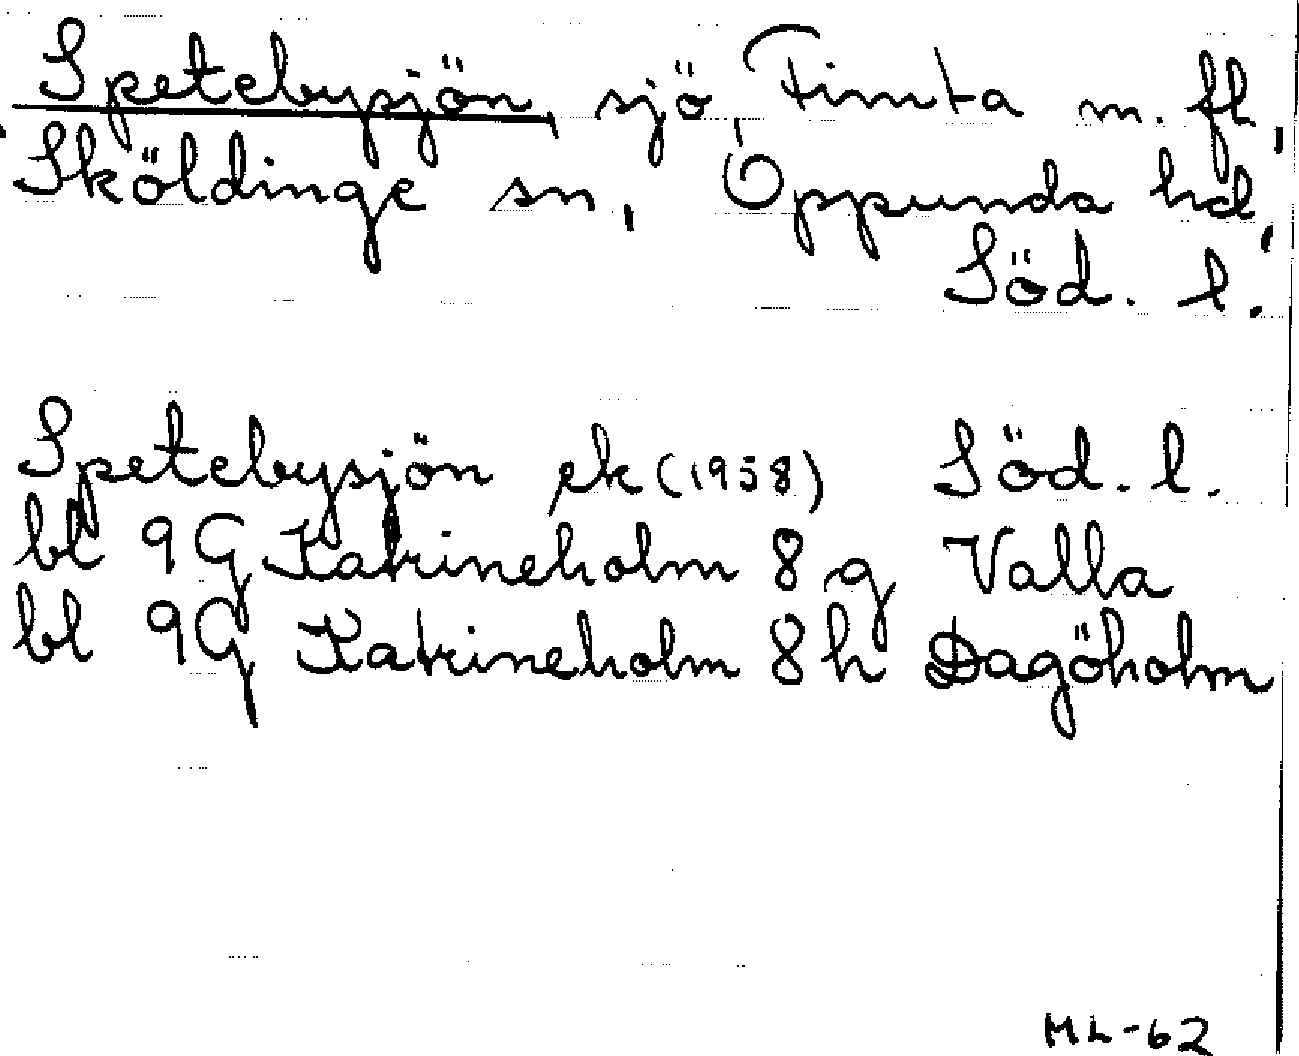 Spetebysjön, sjö, Fimta m. fl.,
Sköldinge sn, Oppunda hd,
Söd. l.
Spetebysjön ek (1958) Söd. l.
bl 9G Katrineholm 8 g Valla
bl 9G Katrineholm 8 h Dagöholm
ML-62